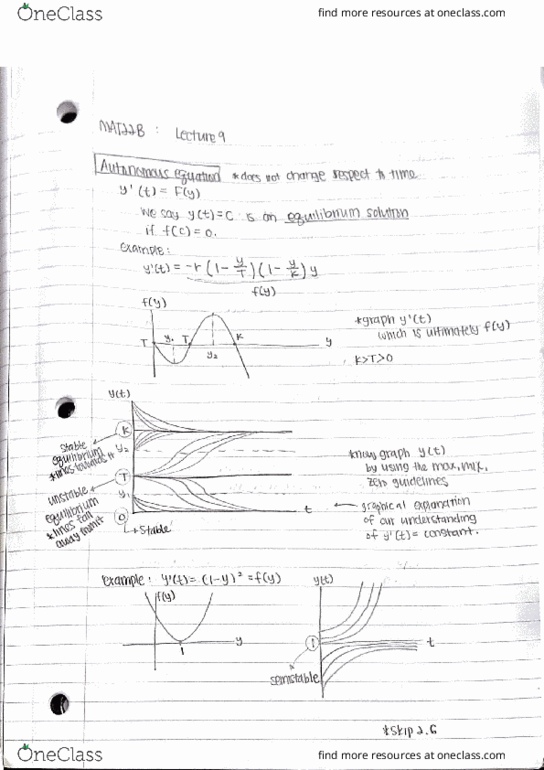 OneClass
find more resources at oneclass.com
MAT22B : Lecture 9
Autonomous equation *does not change respect to time
y'(t) = F(y)
we say y(t)=C is an equilibrium solution
if f(c)=0.
example:
y'(t) = -r(1-y/T)(1-y/K)y
f(y)
f(y)
T y₁ T y₂ K y
*graph y'(t)
which is ultimately f(y)
K>T>0
y(t)
K
y₂
T
y₁
0
t
stable
equilibrium
*lines towards it
unstable
equilibrium
*lines
away from it
stable
*now graph y(t)
by using the max, mix,
zero guidelines
graphical explanation
of our understanding
of y'(t) = constant.
example: y'(t) = (1-y)² = f(y)
f(y)
y
1
y(t)
1
t
semistable
*skip 2.6
OneClass
find more resources at oneclass.com